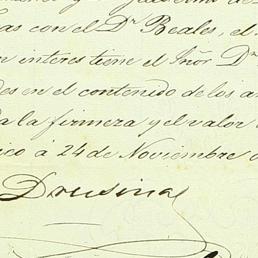 as con el Dr. Reales, el
n interes tiene el Señor Dn
des en el contenido de los a
da la firmeza y el valor
ico á 24 de Noviembre d
Drusina